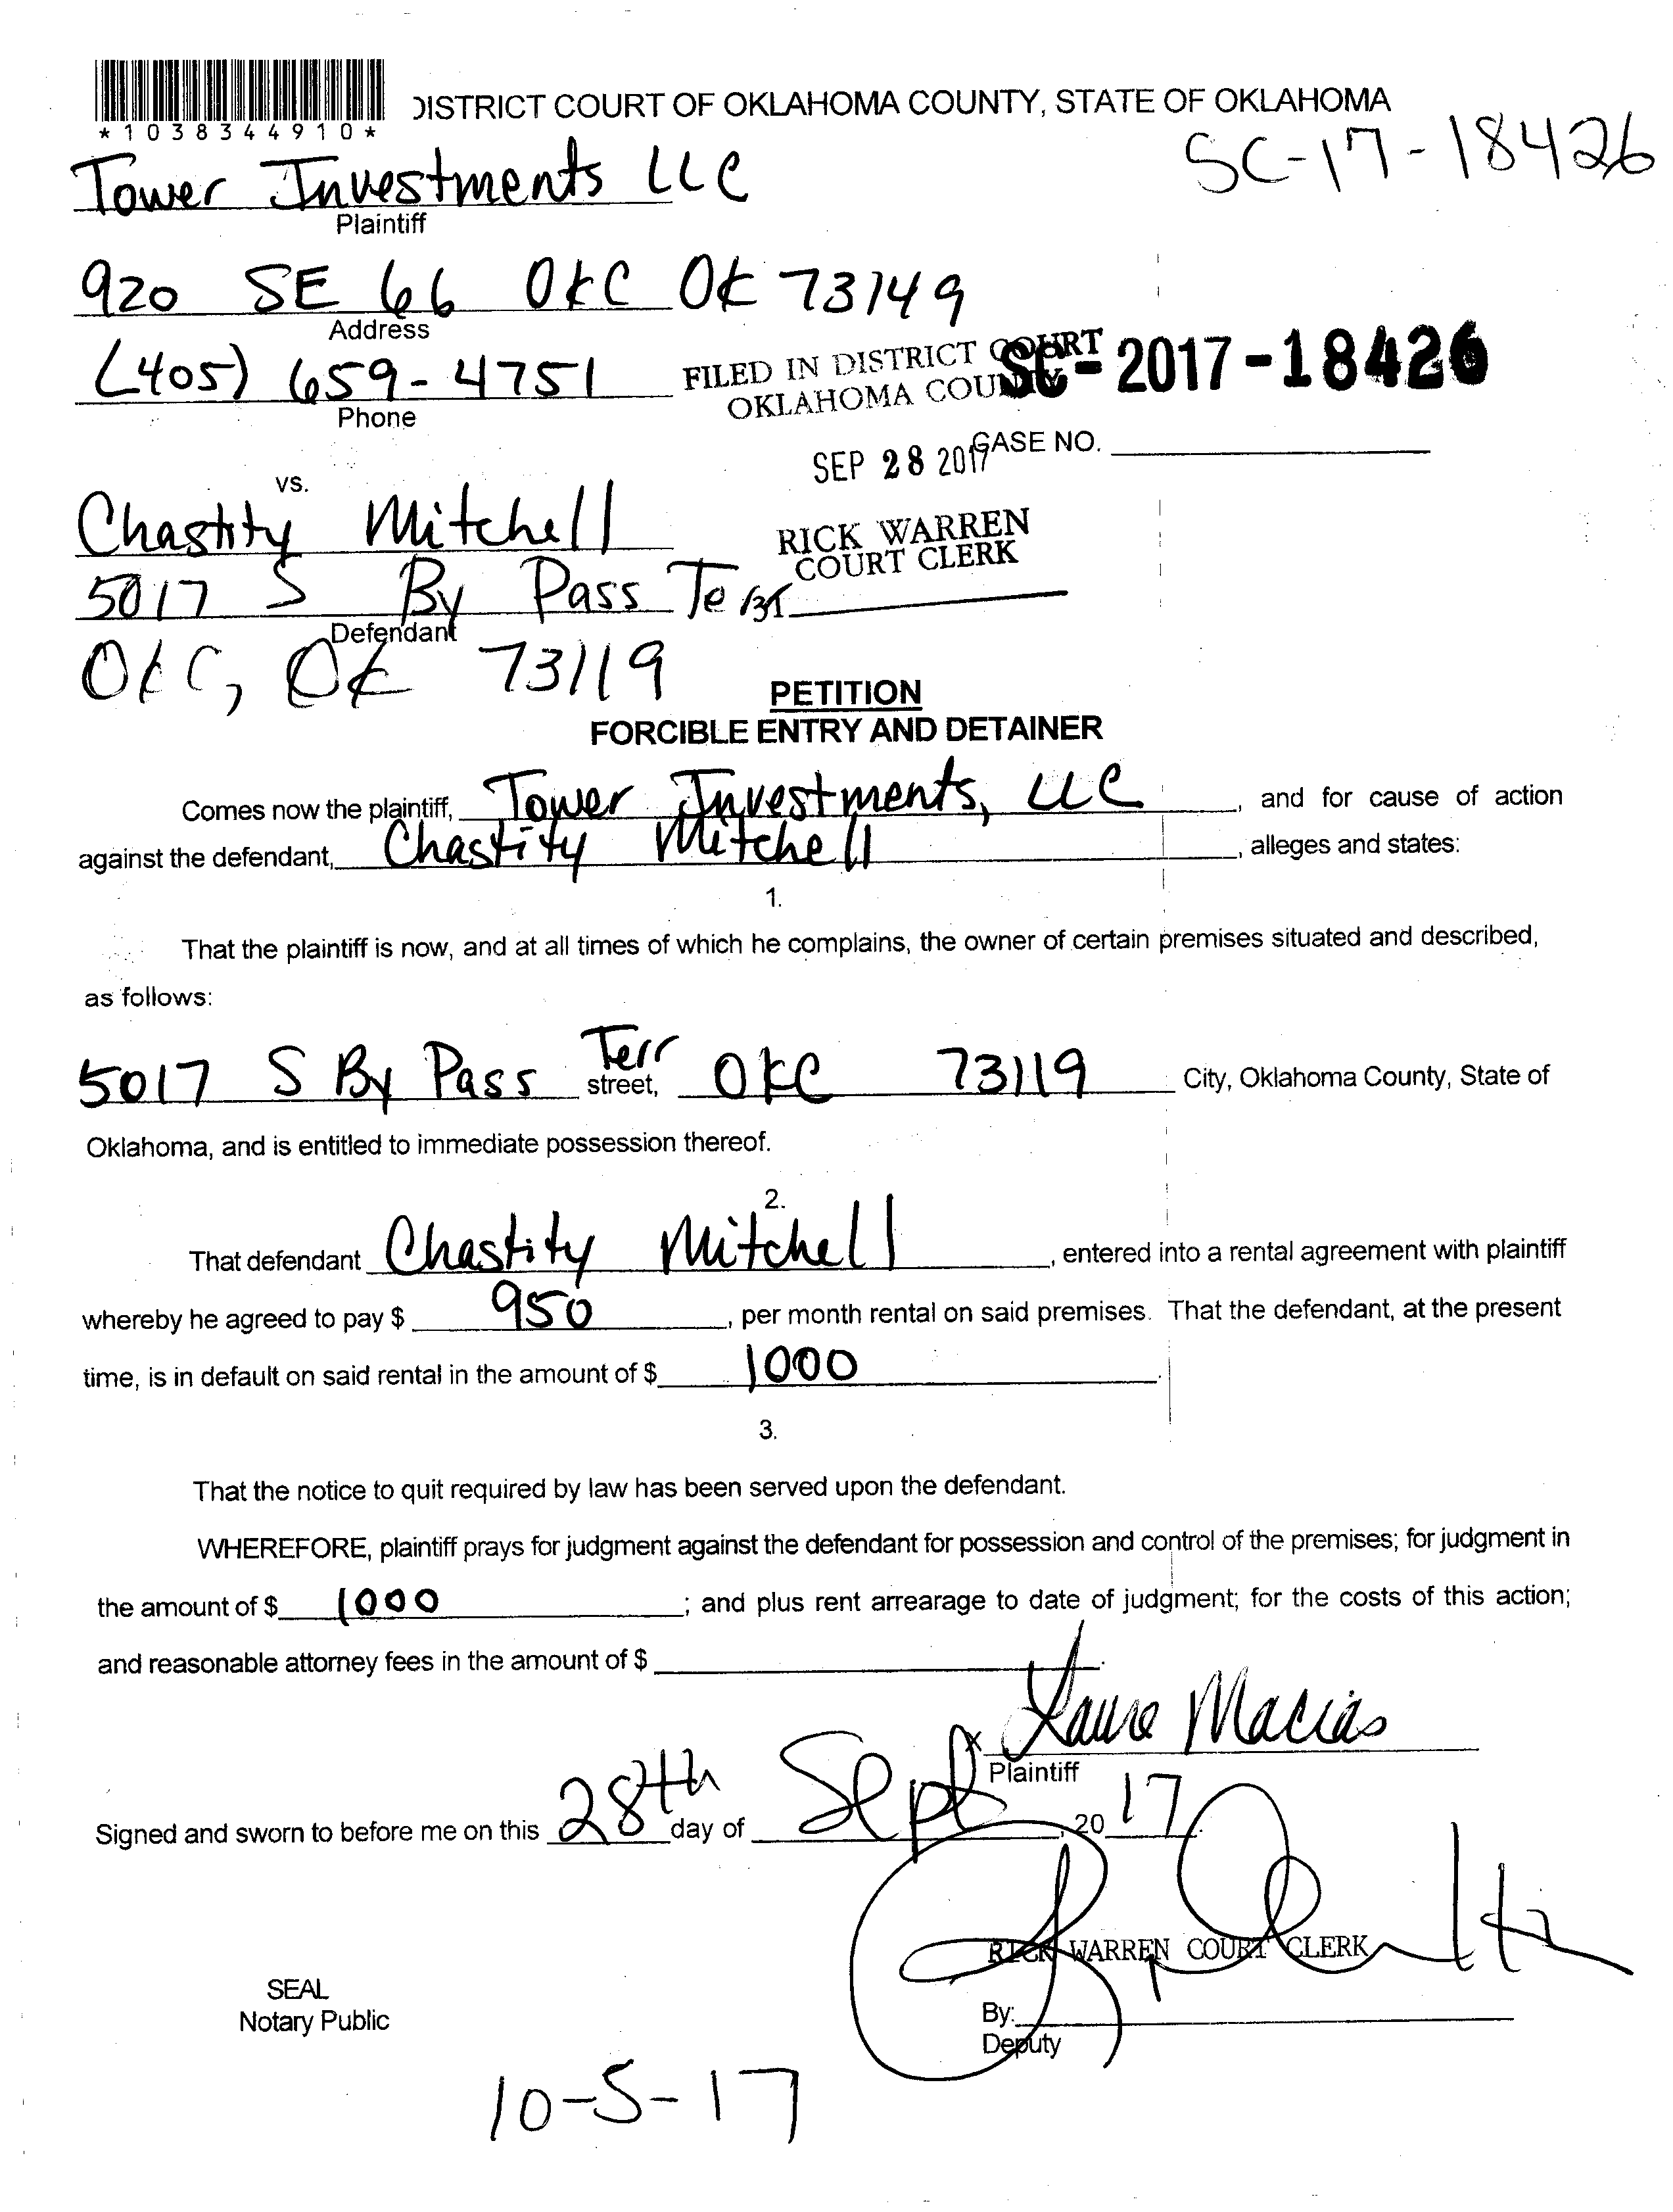 *1038344910*
DISTRICT COURT OF OKLAHOMA COUNTY, STATE OF OKLAHOMA
SC-17-18426
Tower Investments LLC
Plaintiff
920 SE 66 OKC OK 73149
Address
(405) 659-4751
Phone
FILED IN DISTRICT COURT
OKLAHOMA COUNTY
SC-2017-18426
SEP 28 2017
CASE NO.
vs.
Chastity Mitchell
RICK WARREN
COURT CLERK
5017 S By Pass Terr
Defendant
OKC, OK 73119
PETITION
FORCIBLE ENTRY AND DETAINER
Comes now the plaintiff, Tower Investments, LLC, and for cause of action
against the defendant, Chastity Mitchell, alleges and states:
1.
That the plaintiff is now, and at all times of which he complains, the owner of certain premises situated and described,
as follows:
5017 S By Pass Terr street, OKC 73119 City, Oklahoma County, State of
Oklahoma, and is entitled to immediate possession thereof.
2.
That defendant Chastity Mitchell, entered into a rental agreement with plaintiff
whereby he agreed to pay $ 950, per month rental on said premises. That the defendant, at the present
time, is in default on said rental in the amount of $ 1000.
3.
That the notice to quit required by law has been served upon the defendant.
WHEREFORE, plaintiff prays for judgment against the defendant for possession and control of the premises; for judgment in
the amount of $ 1000; and plus rent arrearage to date of judgment; for the costs of this action;
and reasonable attorney fees in the amount of $
x Laura Macias
Plaintiff
Signed and sworn to before me on this 28th day of Sept, 20 17.
RICK WARREN COURT CLERK
SEAL
Notary Public
By:
Deputy
10-5-17